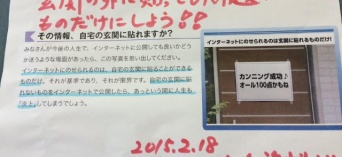 ものだけにしよう!!
その情報、自宅の玄関に貼れますか?
みなさんが今後の人生で、インターネットに公開しても良いかどう
か迷うような場面があったら、この写真を思い出してください。
インターネットにのせられるのは、自宅の玄関に貼ることができる
ものだけ。それが基準であり、それが限界です。自宅の玄関に貼
れないものをインターネットで公開したら、あっという間に人生も
「炎上」してしまうでしょう。
インターネットにのせられるのは玄関に貼れるものだけ!
カンニング成功♪
オール100点かもね
2015.2.18